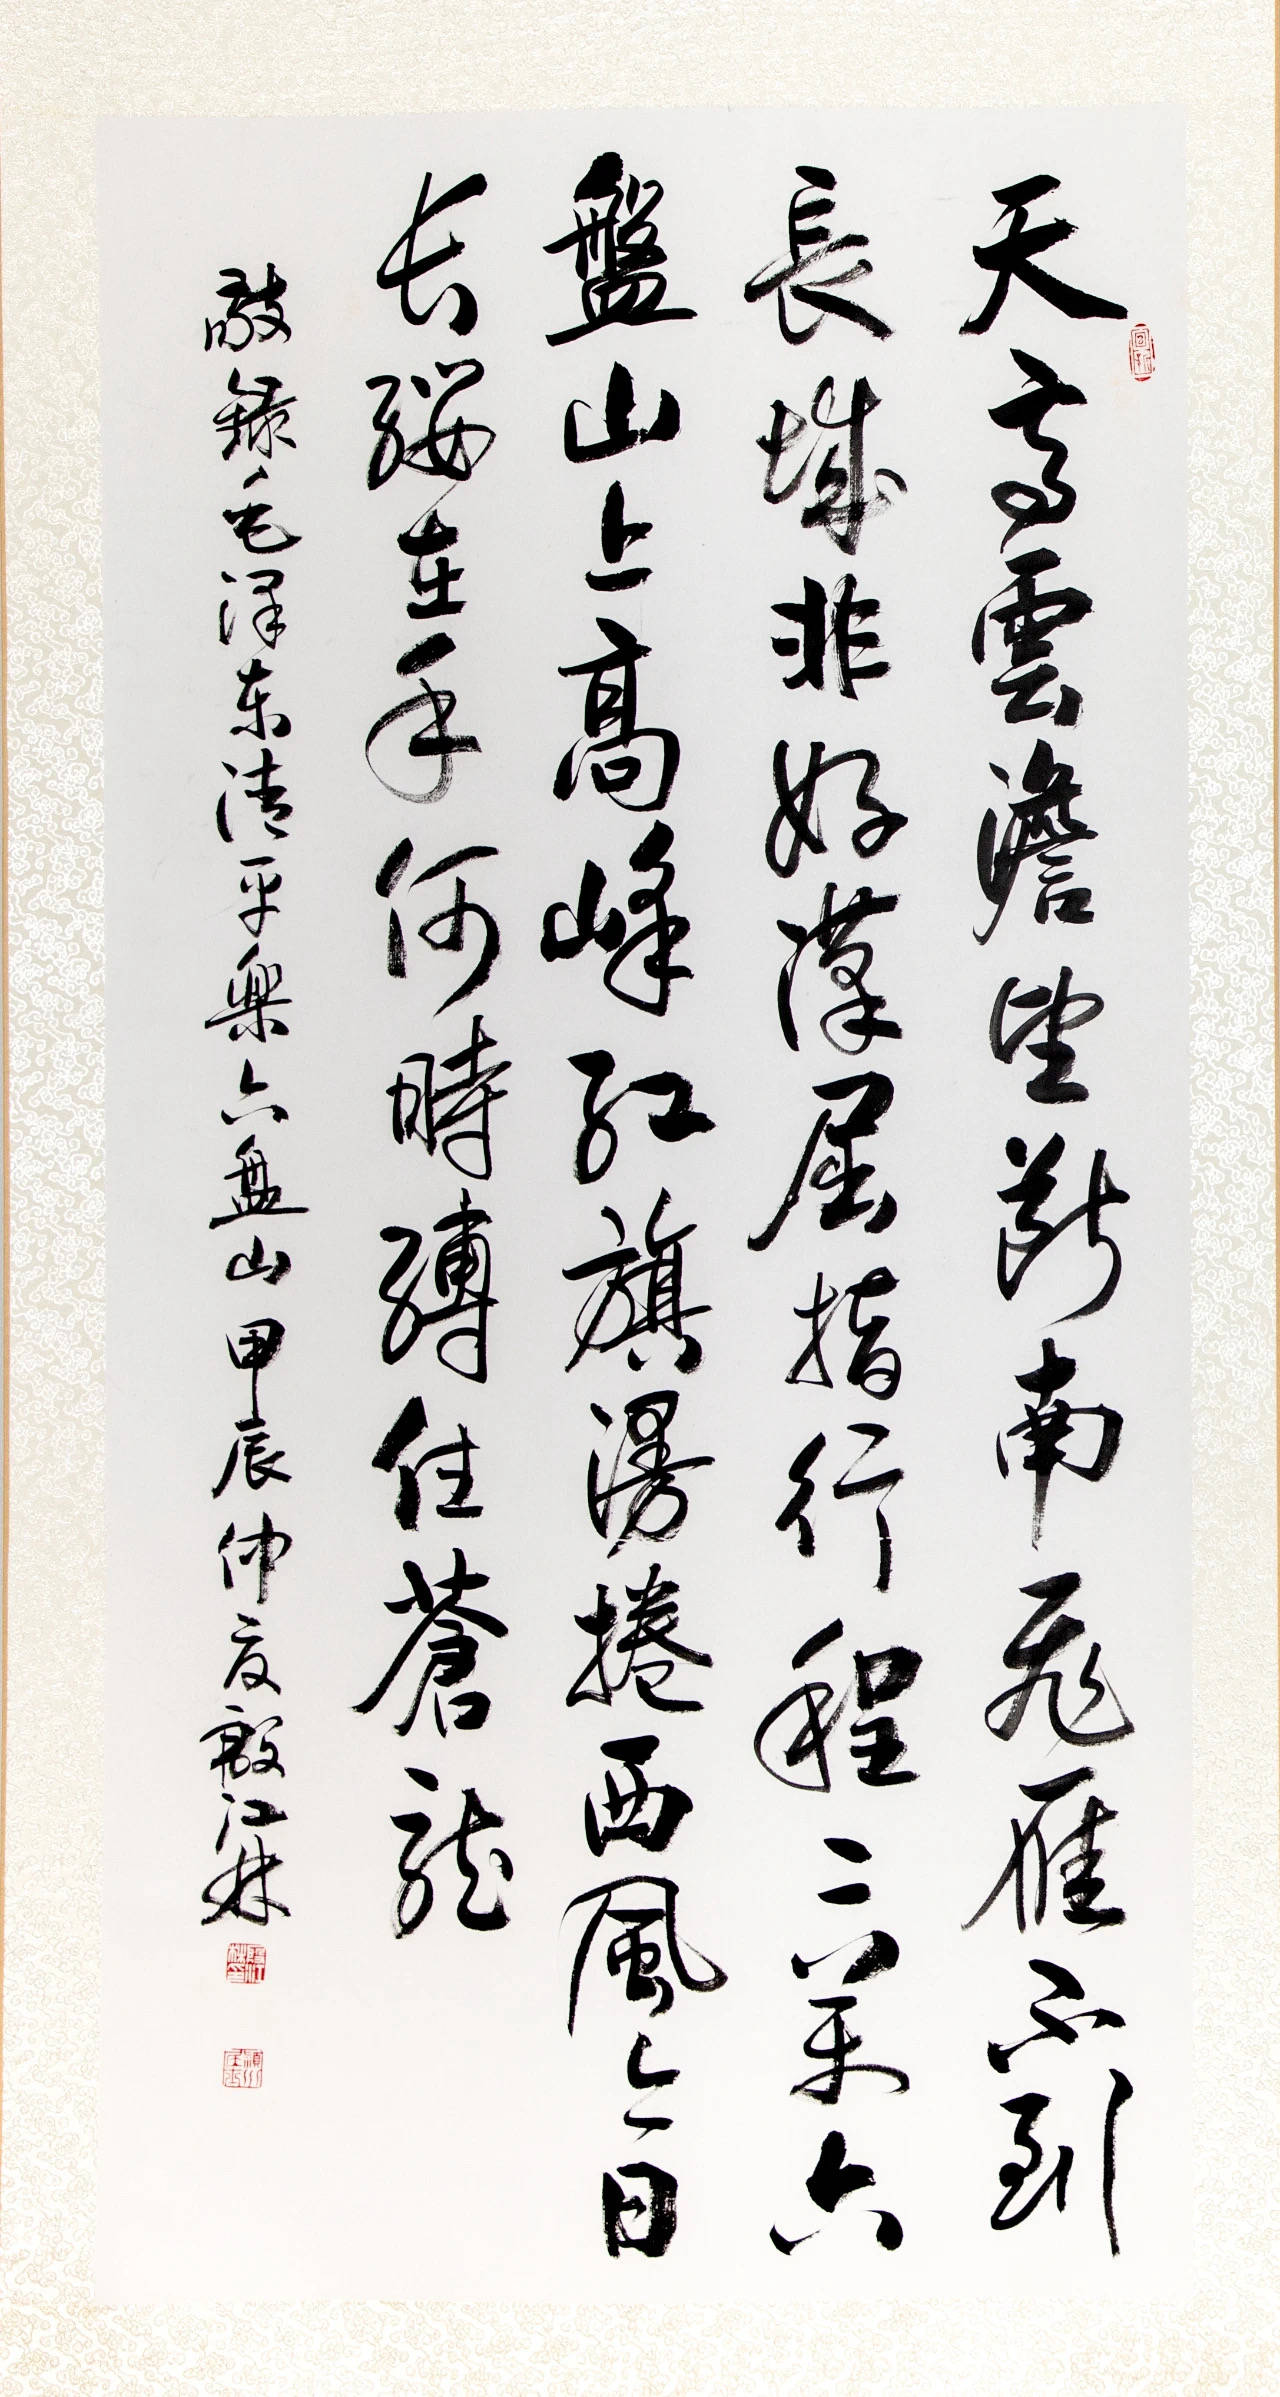 天高雲澹望斷南飛雁不到
長城非好漢屈指行程二萬六
盤山上高峰紅旗漫捲西風今日
长纓在手何時縛住蒼龍
敬錄毛泽东清平樂六盘山甲辰仲夏殷江林